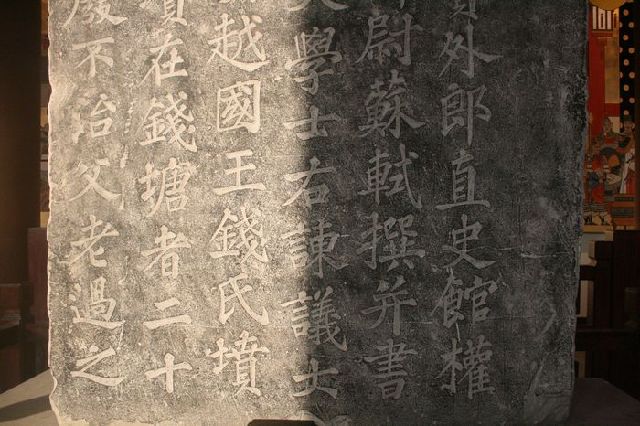 外郎直史館權
尉蘇軾撰并書
大學士右諫議大
越國王錢氏墳
墳在錢塘者二十
廢不治父老過之